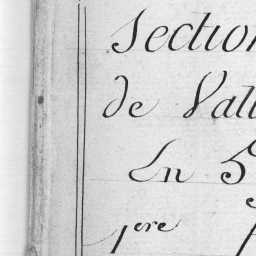 Section
de Vall
En 5
1ere